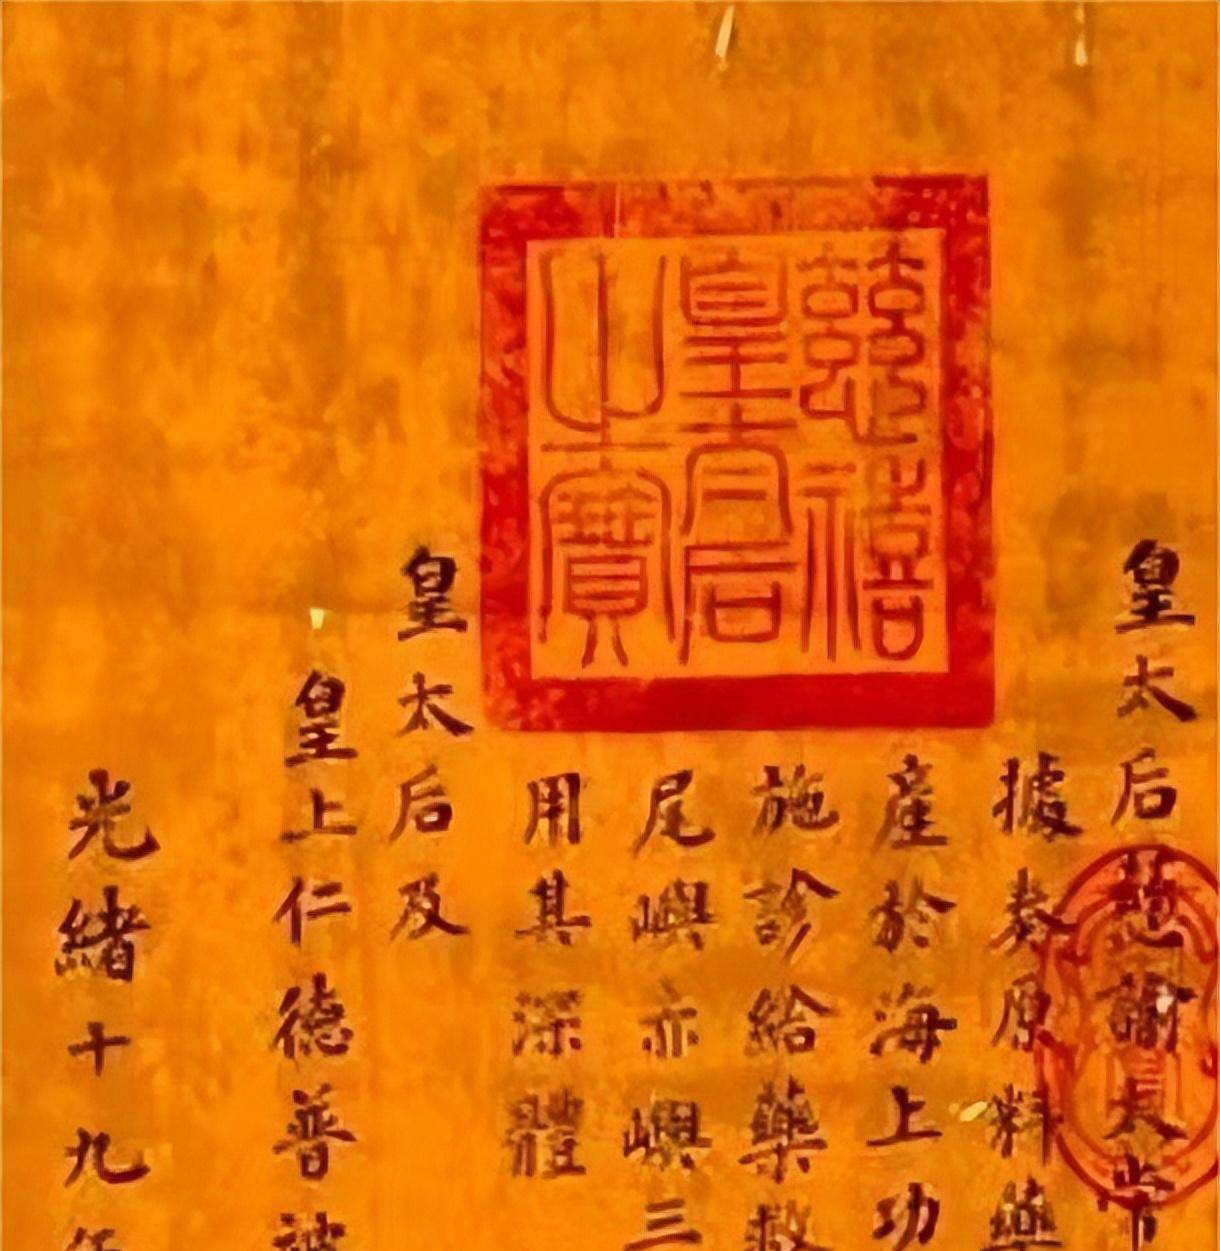 慈禧
皇太后
之寶
皇太后慈諭太常
據奏原料藥
產於海上功
施診給藥救
尾嶼赤嶼三
用其深體
皇太后及
皇上仁德普被
光緒十九年